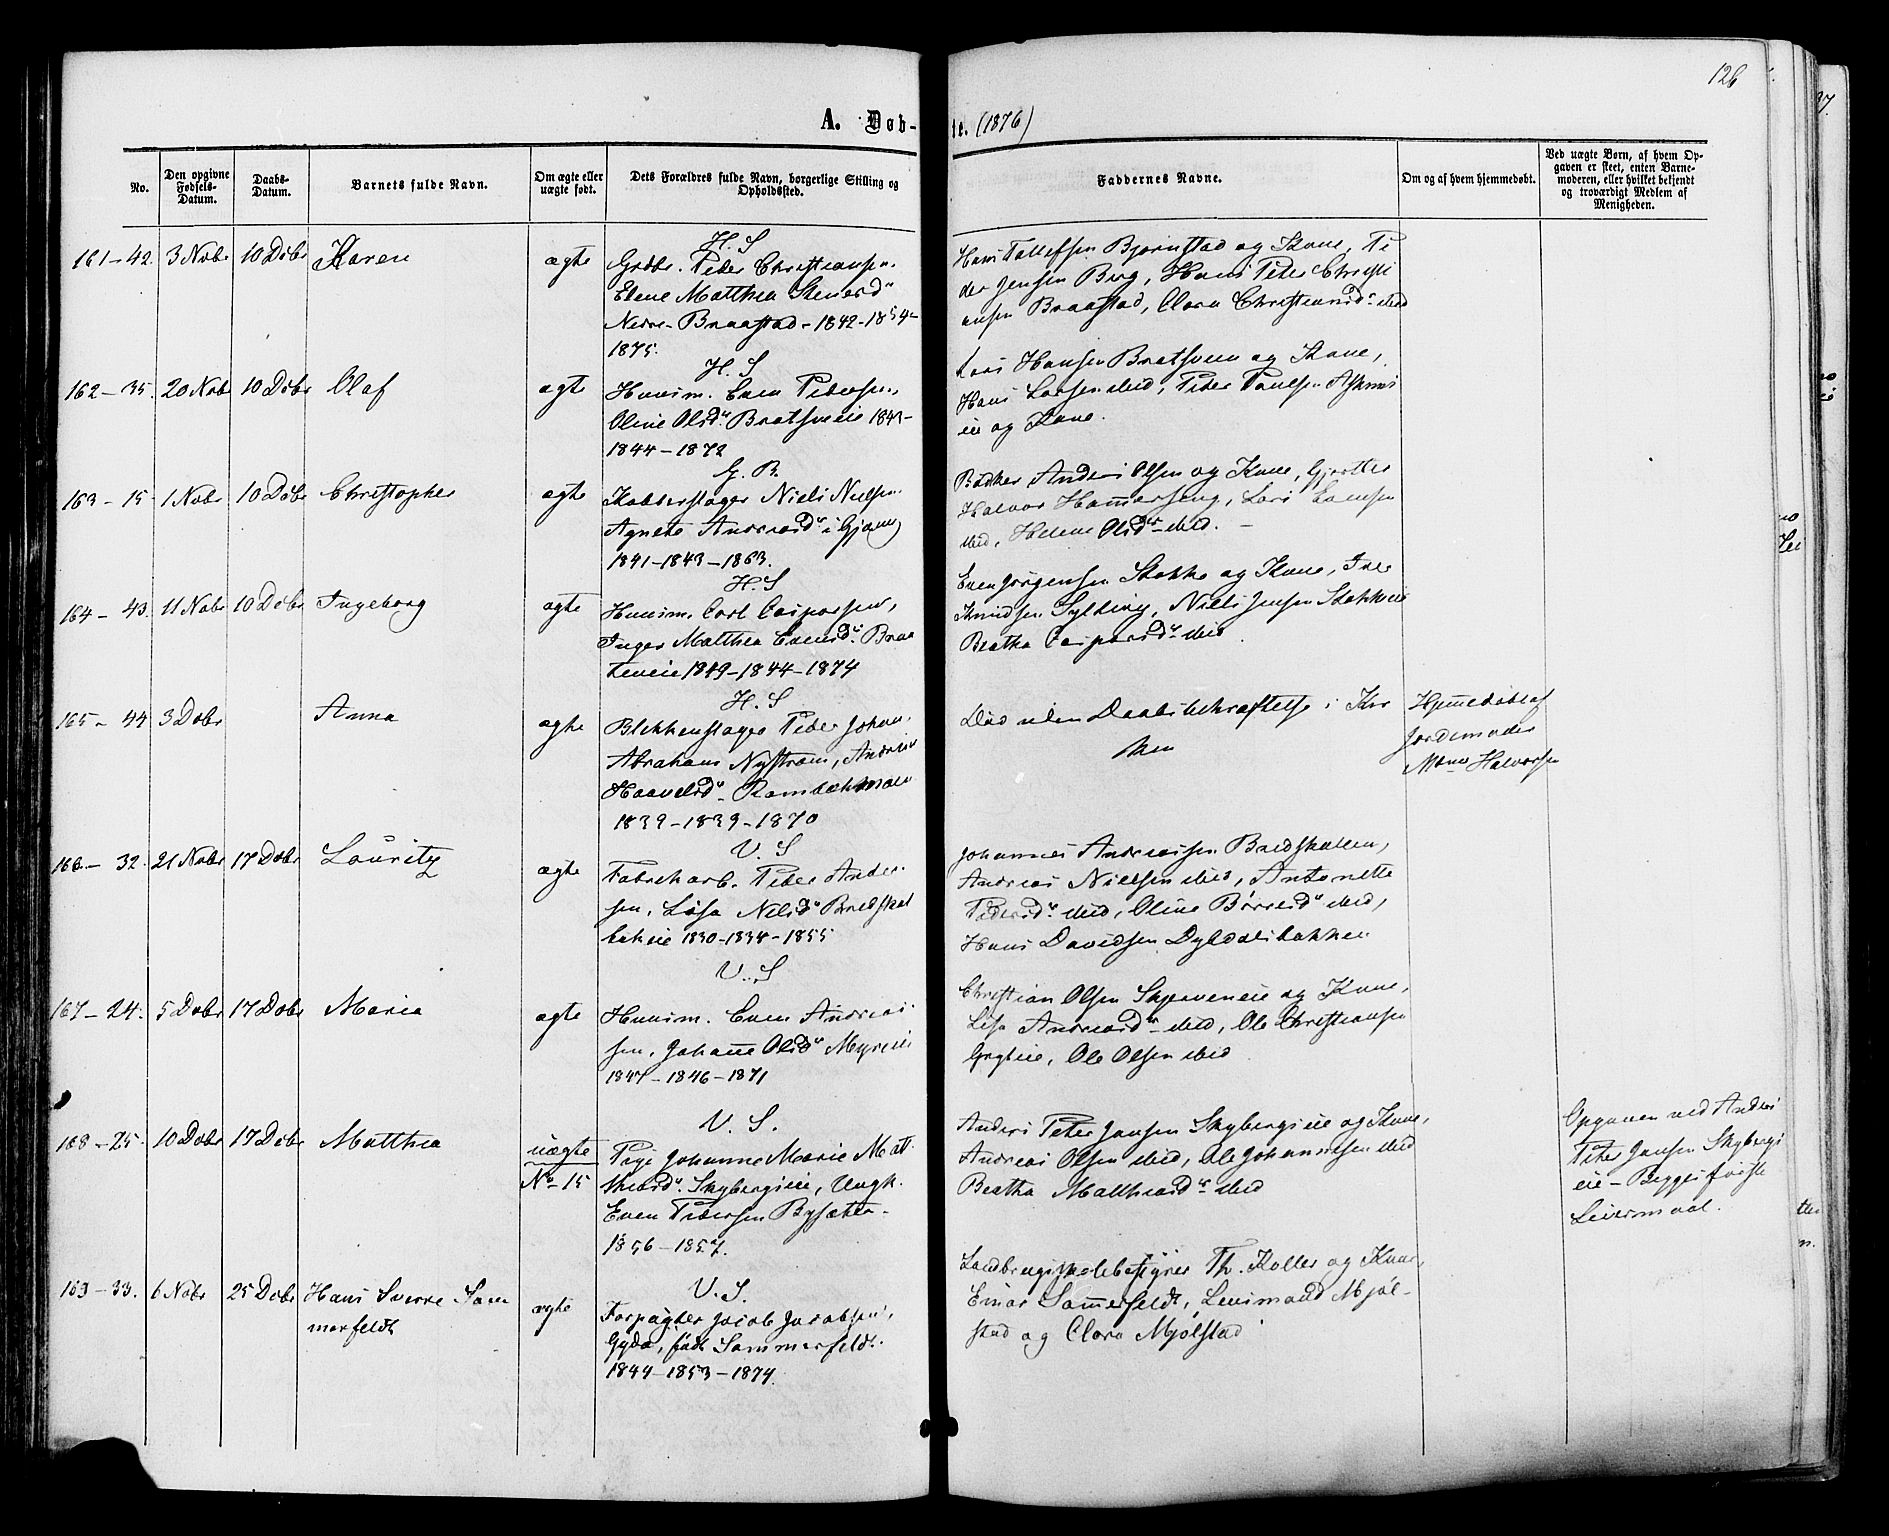 126
A. Døb-
te. (1876)
No.
Den opgivne Fødsels-Datum.
Daabs-Datum.
Barnets fulde Navn.
Om ægte eller uægte født.
Dets Forældres fulde Navn, borgerlige Stilling og Opholdssted.
Faddernes Navne.
Om og af hvem hjemmedøbt.
Ved uægte Børn, af hvem Opgaven er skeet, enten Barnemoderen, eller hvilket bekjendt og troværdigt Medlem af Menigheden.
161-42. 3 Nobr 10 Dcbr Karen ægte
H. S
Grdbr. Peder Christiansen,
Elene Matthea Stensrd
Nedre-Braastad-1842-1854-
1875.
Hans Tollefsen Bjørnstad og Kone, Pe
der Jensen Berg, Hans Peter Christi
ansen Braastad, Clara Christiansd. ibid
162-35. 20 Nobr 10 Dcbr Olaf ægte
H. S
Huusm. Even Pedersen,
Oline Olsdr Bratsveeie 1843-
1844-1872
Lars Hansen Bratsveen og Kone,
Hans Larsen ibid, Peder Paulsen
eie og Kone.
163-15. 1 Nobr 10 Dcbr Christopher ægte
G. B.
Kobberslager Niels Nielsen,
Agnete Andreasdr i Gjøvig
1841-1843-1863.
Bødker Anders Olsen og Kone, Gjørtler
Halvor Hammerseng, Lars Evensen
ibid, Helene Olsdr ibid.
164-43. 11 Nobr 10 Dcbr Ingeborg ægte
H. S
Huusm. Carl Caspersen,
Inger Matthea Evensdr Braa
teneie 1849-1844-1874
Even Jørgensen Stokke og Kone, Iver
Knudsen Sylling, Niels Jensen Stokkeeie
Beatha Caspersdr ibid.
165-44 3 Dcbr Anna ægte
H. S
Blikkenslager Peder Johan
Abrahams Nystrøm, Andrine
Haavelsdr
1839-1839-1870
Død uden Daabsbekræftelse i Kir
ken
Hjemmedøbt af
Jordemoder
Mdme Halvorsen
166-32. 21 Nobr 17 Dcbr Lauritz ægte
V. S
Fabrikarb. Peder Ander-
sen, Lisa Nilsdr Bredskal
bakeie 1830-1834-1855
Johannes Andreassen Bredskallen,
Andreas Nielsen ibid, Antonette
Pedersdr ibid, Oline Børresdr ibid,
Hans Davidsen Dybdalsbakken
167-24. 5 Dcbr 17 Dcbr Maria ægte
V. S
Huusm. Even Andreas-
sen, Johanne Olsdr Myreeie
1847-1846-1871
Christian Olsen Skjerveneie og Kone,
Lisa Andreasdr ibid, Ole Christiansen
Ole Olsen ibid
168-25. 10 Dcbr 17 Dcbr Matthea uægte
No 15
V. S.
Pige Johanne Marie Mat-
thiasdr. Skybergseie, Ungk.
Even Pedersen Bysæter-
1856-1857.
Anders Peter Jansen Skybergseie og Kone,
Andreas Olsen ibid, Ole Johannesen ibid
Beatha Matthiasdr ibid
Opgaven ved Anders
Peter Jansen Skybergs
eie - Begges første
Leiermaal.
169-33. 6 Nobr 25 Dcbr Hans Sverre Som
merfeldt ægte
V. S.
Forpagter Jacob Jacobsen,
Gyda, født Sommerfeldt.
1844-1853-1874.
Landbrugsskolebestyrer Th. Koller og Kone,
Einar Sommerfeldt, Lensmand Mjøl-
stad og Clara Mjølstad